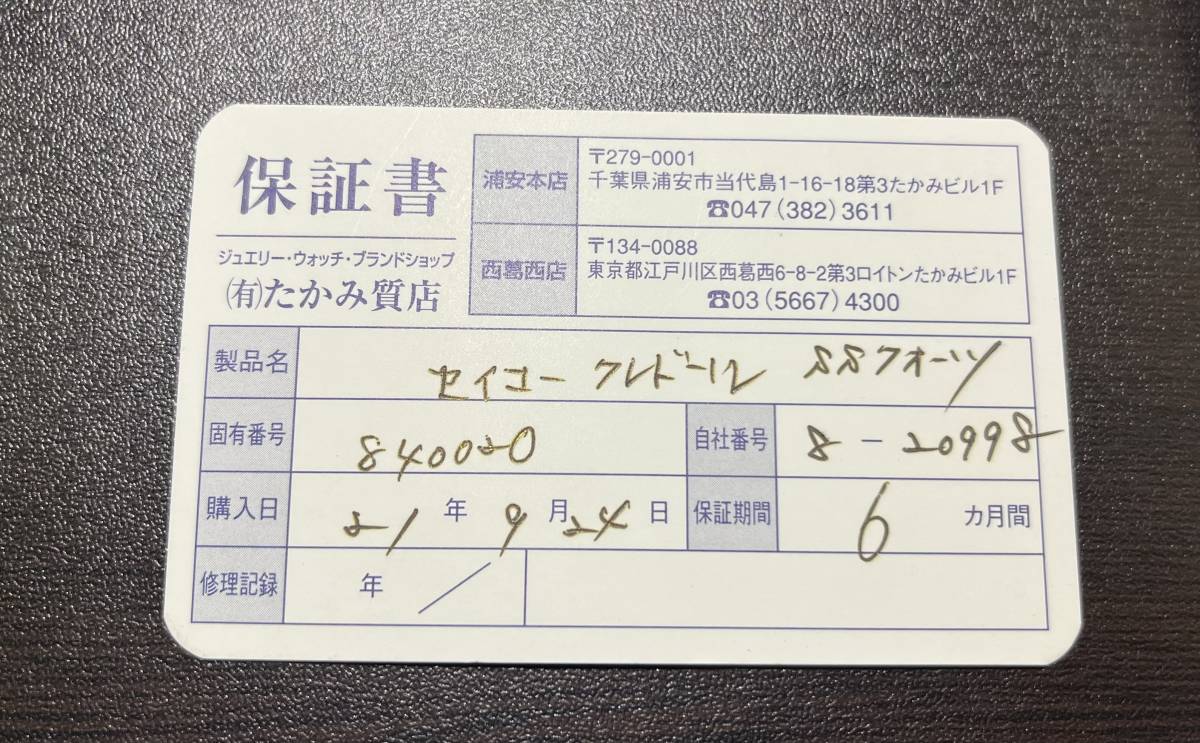 保証書
ジュエリー・ウォッチ・ブランドショップ
(有)たかみ質店
浦安本店
〒279-0001
千葉県浦安市当代島1-16-18第3たかみビル1F
☎047(382)3611
西葛西店
〒134-0088
東京都江戸川区西葛西6-8-2第3ロイトンたかみビル1F
☎03(5667)4300
製品名 セイコー クレドール SSクオーツ
固有番号 840020 自社番号 8-20998
購入日 21年9月24日 保証期間 6カ月間
修理記録 年 /